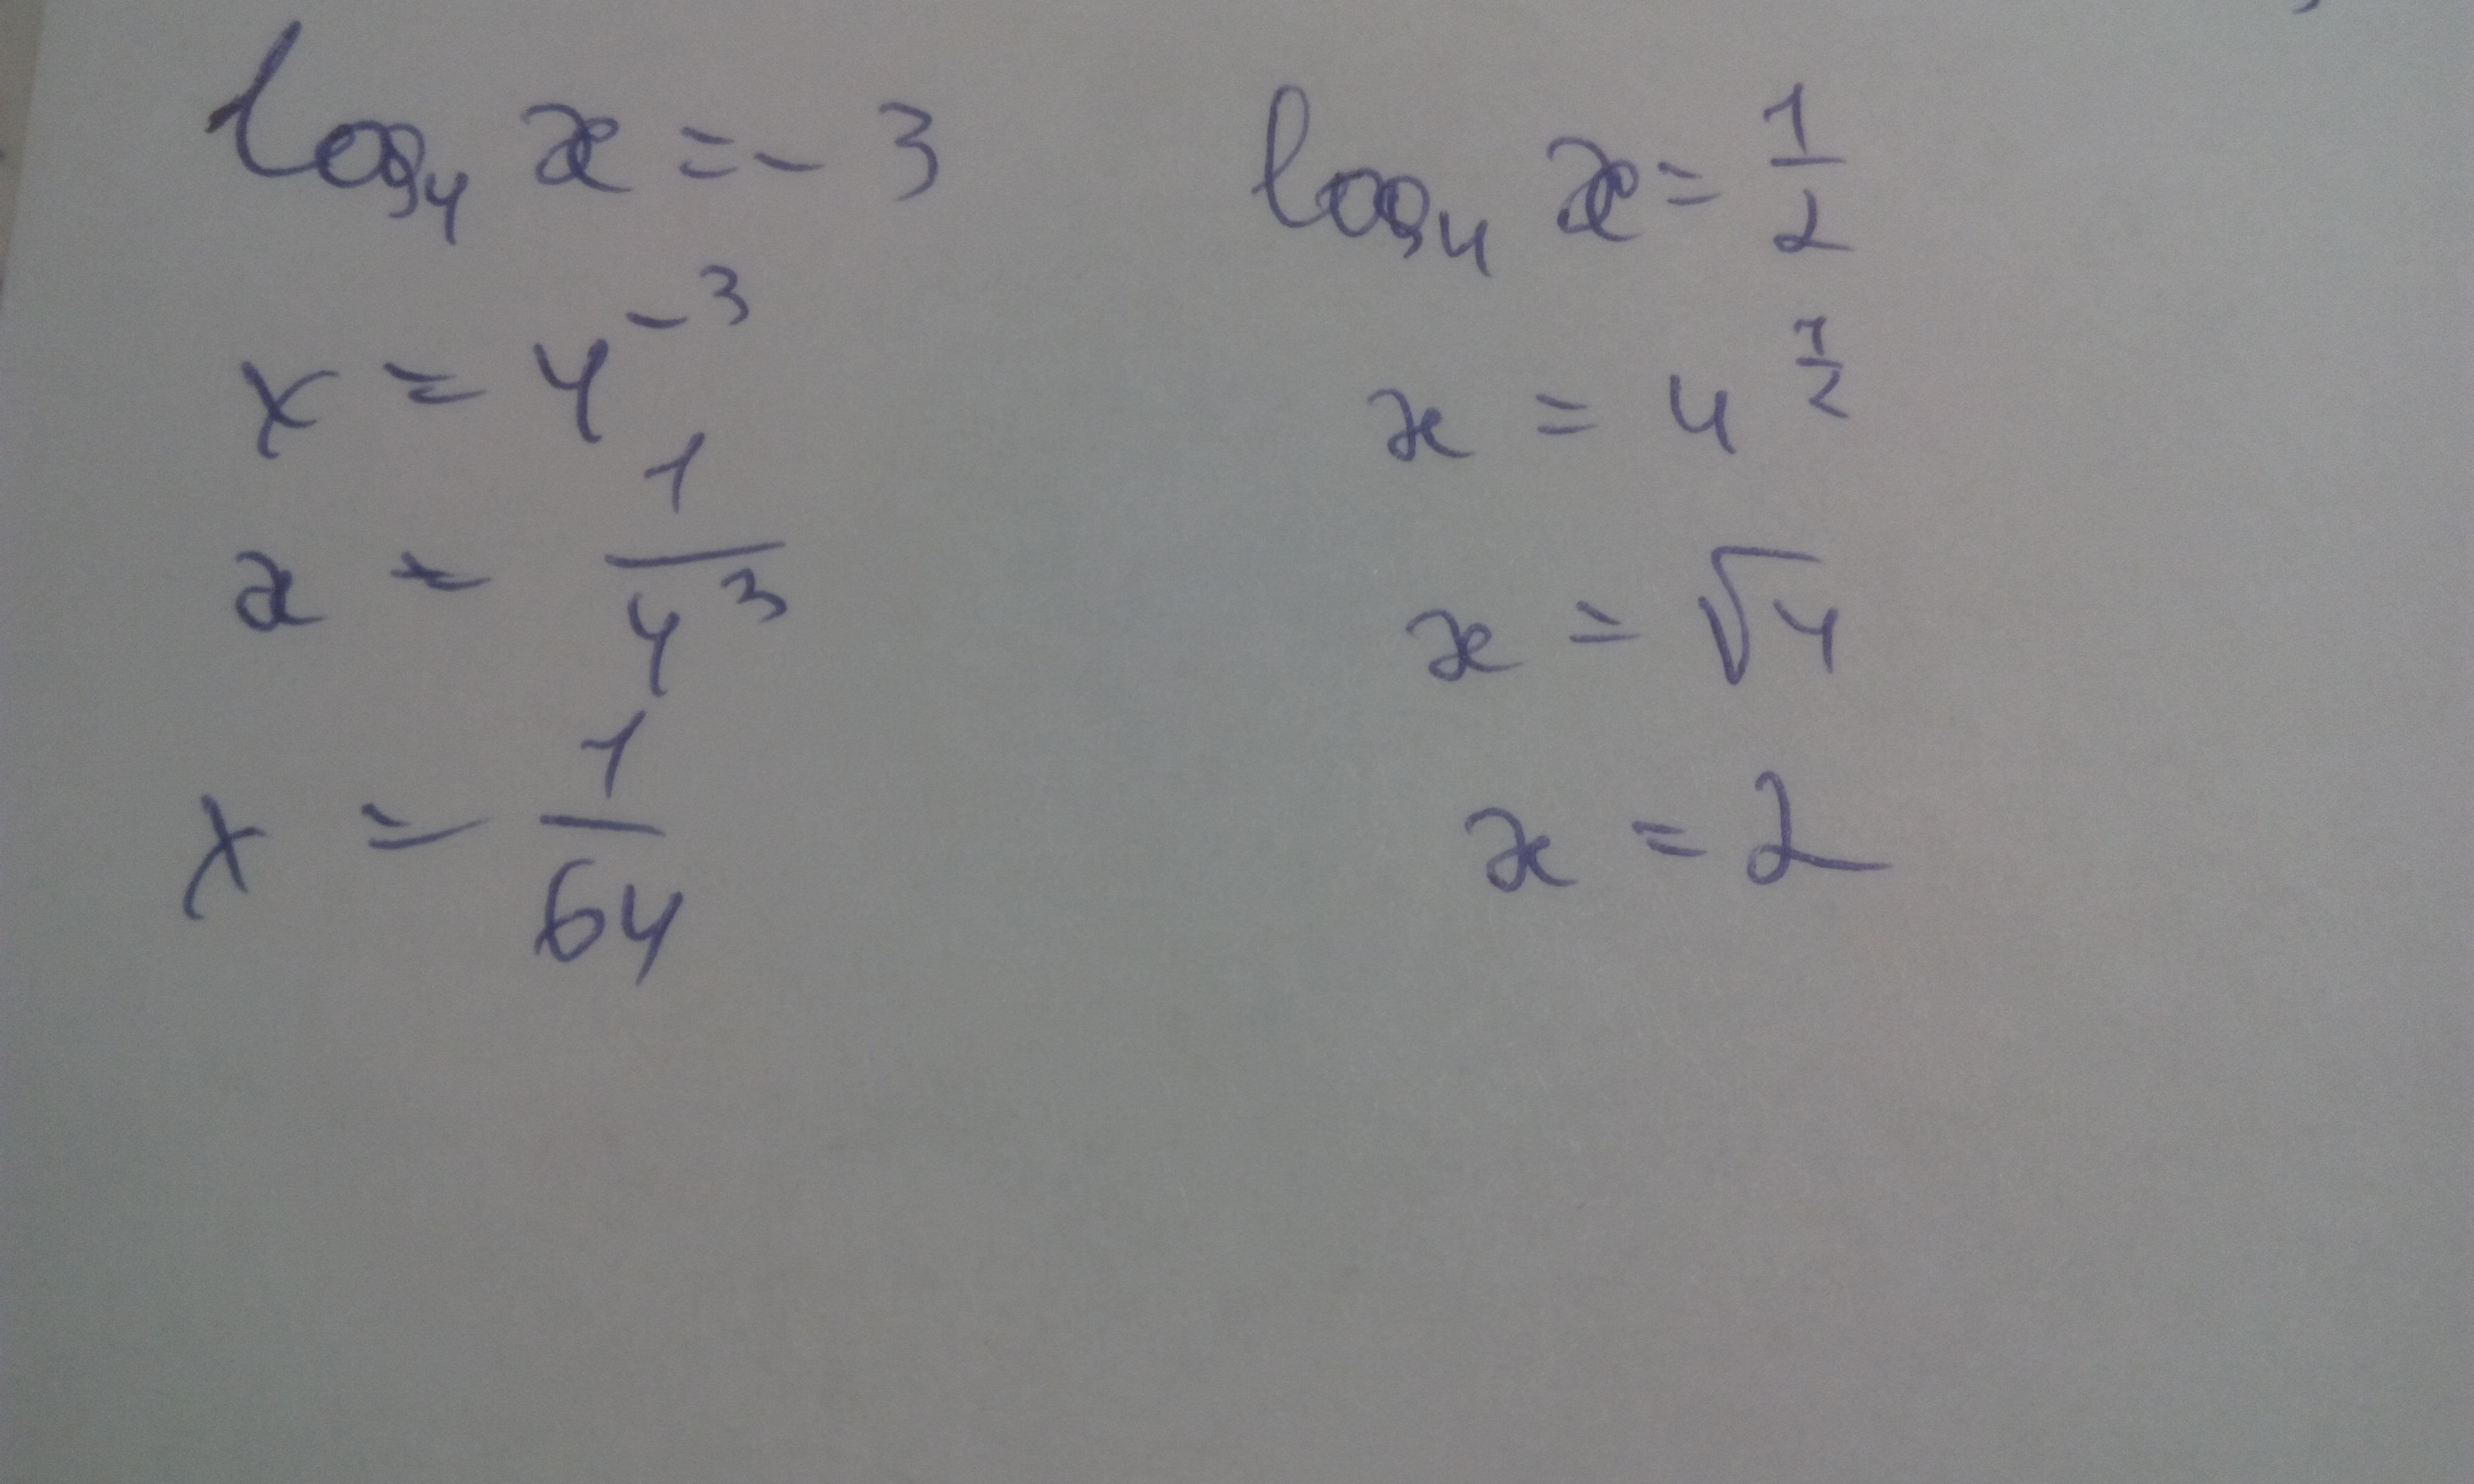 log₄ x = - 3
x = 4⁻³
x = 1/4³
x = 1/64
log₄ x = 1/2
x = 4^(1/2)
x = √4
x = 2